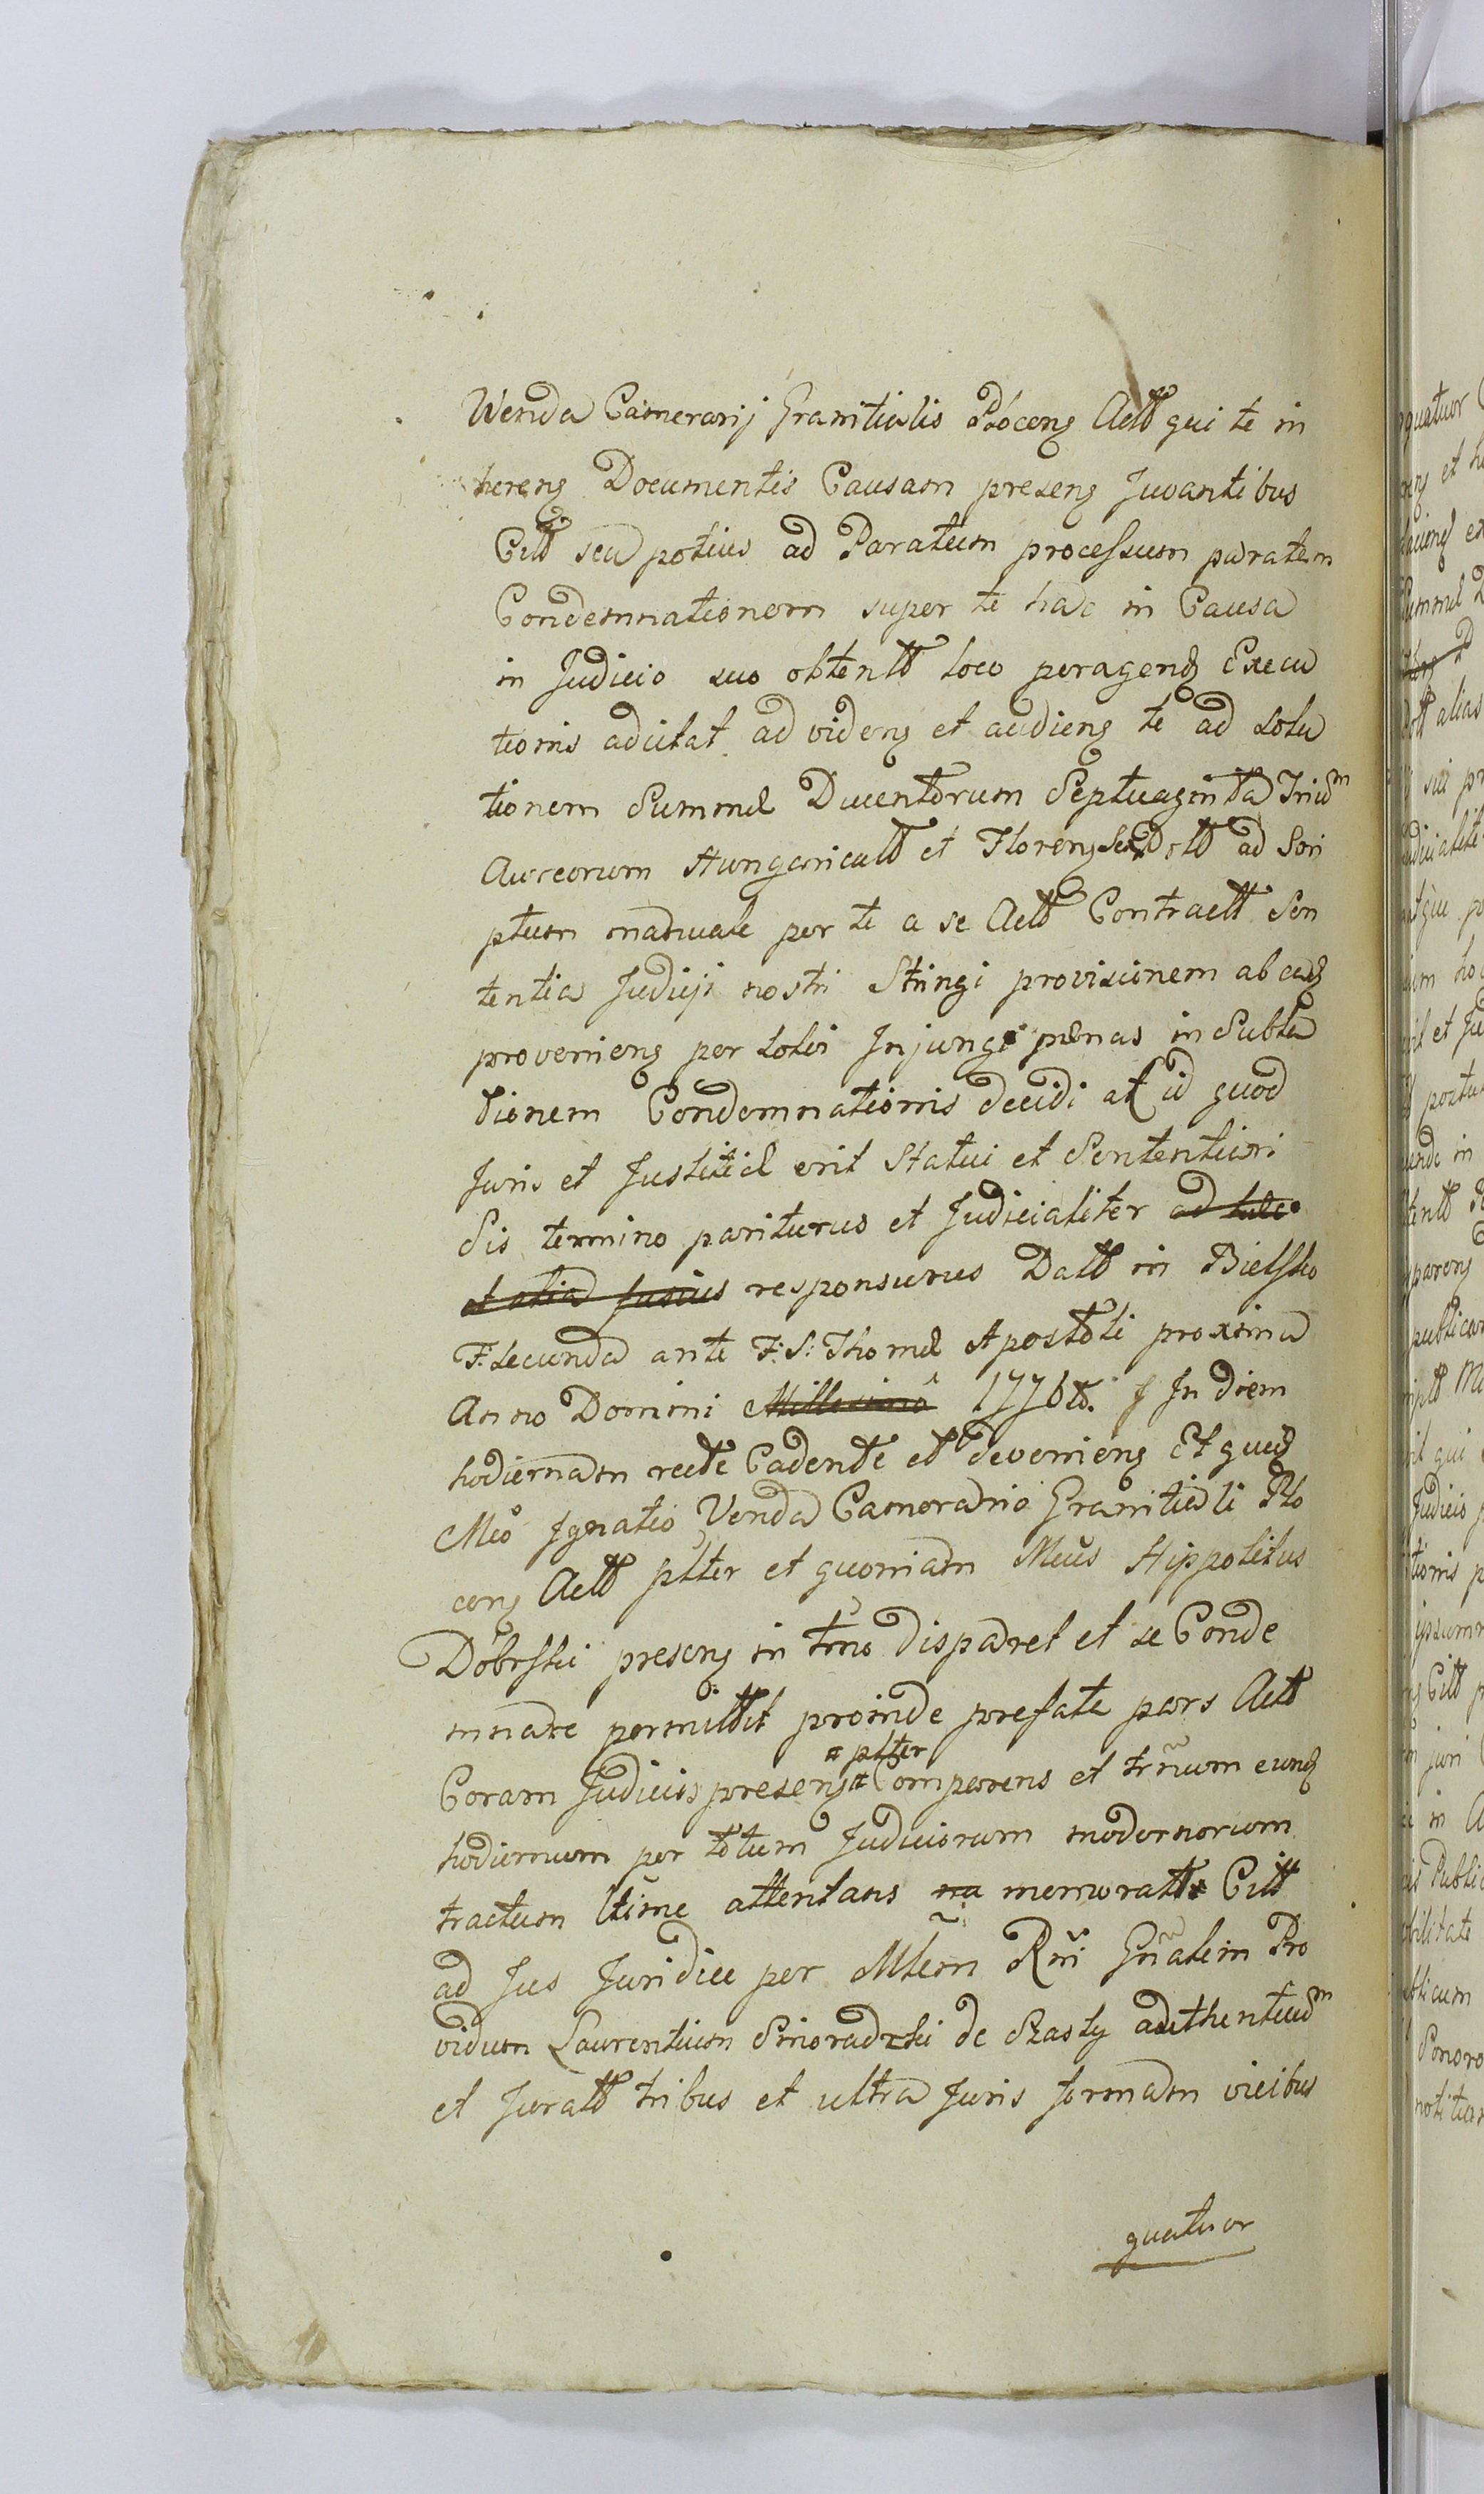 Wenda Camerarij Granitialis Ploceng Actt qui te in
hereng Documentis Causam preseng Juvantibus
Citt seu potius ad Paratum processum paratam
Condemnationem super te hac in Causa
in Judicio suo obtentt loco peragend Execu
tionis adcitat ad videng et audieng te ad Solu
tionem Summæ Ducentorum Septuaginta Trium
Aureorum Hungaricatt et Floreng ad Scri
ptum manuale per te a se Actt Contractt Sen
tentia Judicji nostri Stringi provisionem ab ead
provenieng per Solvi Injungi pænas in Subla
tionem Condemnationis decidi at id quod
Juris et Justitiæ erit Statui et Sententiari
Sis termino pariturus et Judicialiter ad
et alia fusius responsurus Datt in Bielsko
F. Secunda ante F: S: Thomæ Apostoli proxima
Anno Domini Millesimo 1776to. In diem
hodiernam recte Cadente et devenieng Et quid
Mco Ignatio Venda Camerario Granitiali Plo
ceng Actt plter et quoniam Mcus Hippolitus
Dobrski preseng in tmno disparet et se Conde
mnare permittit proinde prefata pars Actt
Coram Judiciis preseng # # plter Comparens et trnum eund
hodiernum per totum Judiciorum modernorum
tractum ltime attentans na memoratt Citt
ad Jus Juridice per Mlem Rni Gnalem Pro
vidum Laurentium Smoradzki de Szasty authenticum
et Juratt tribus et ultra Juris formam vicibus
quatuor